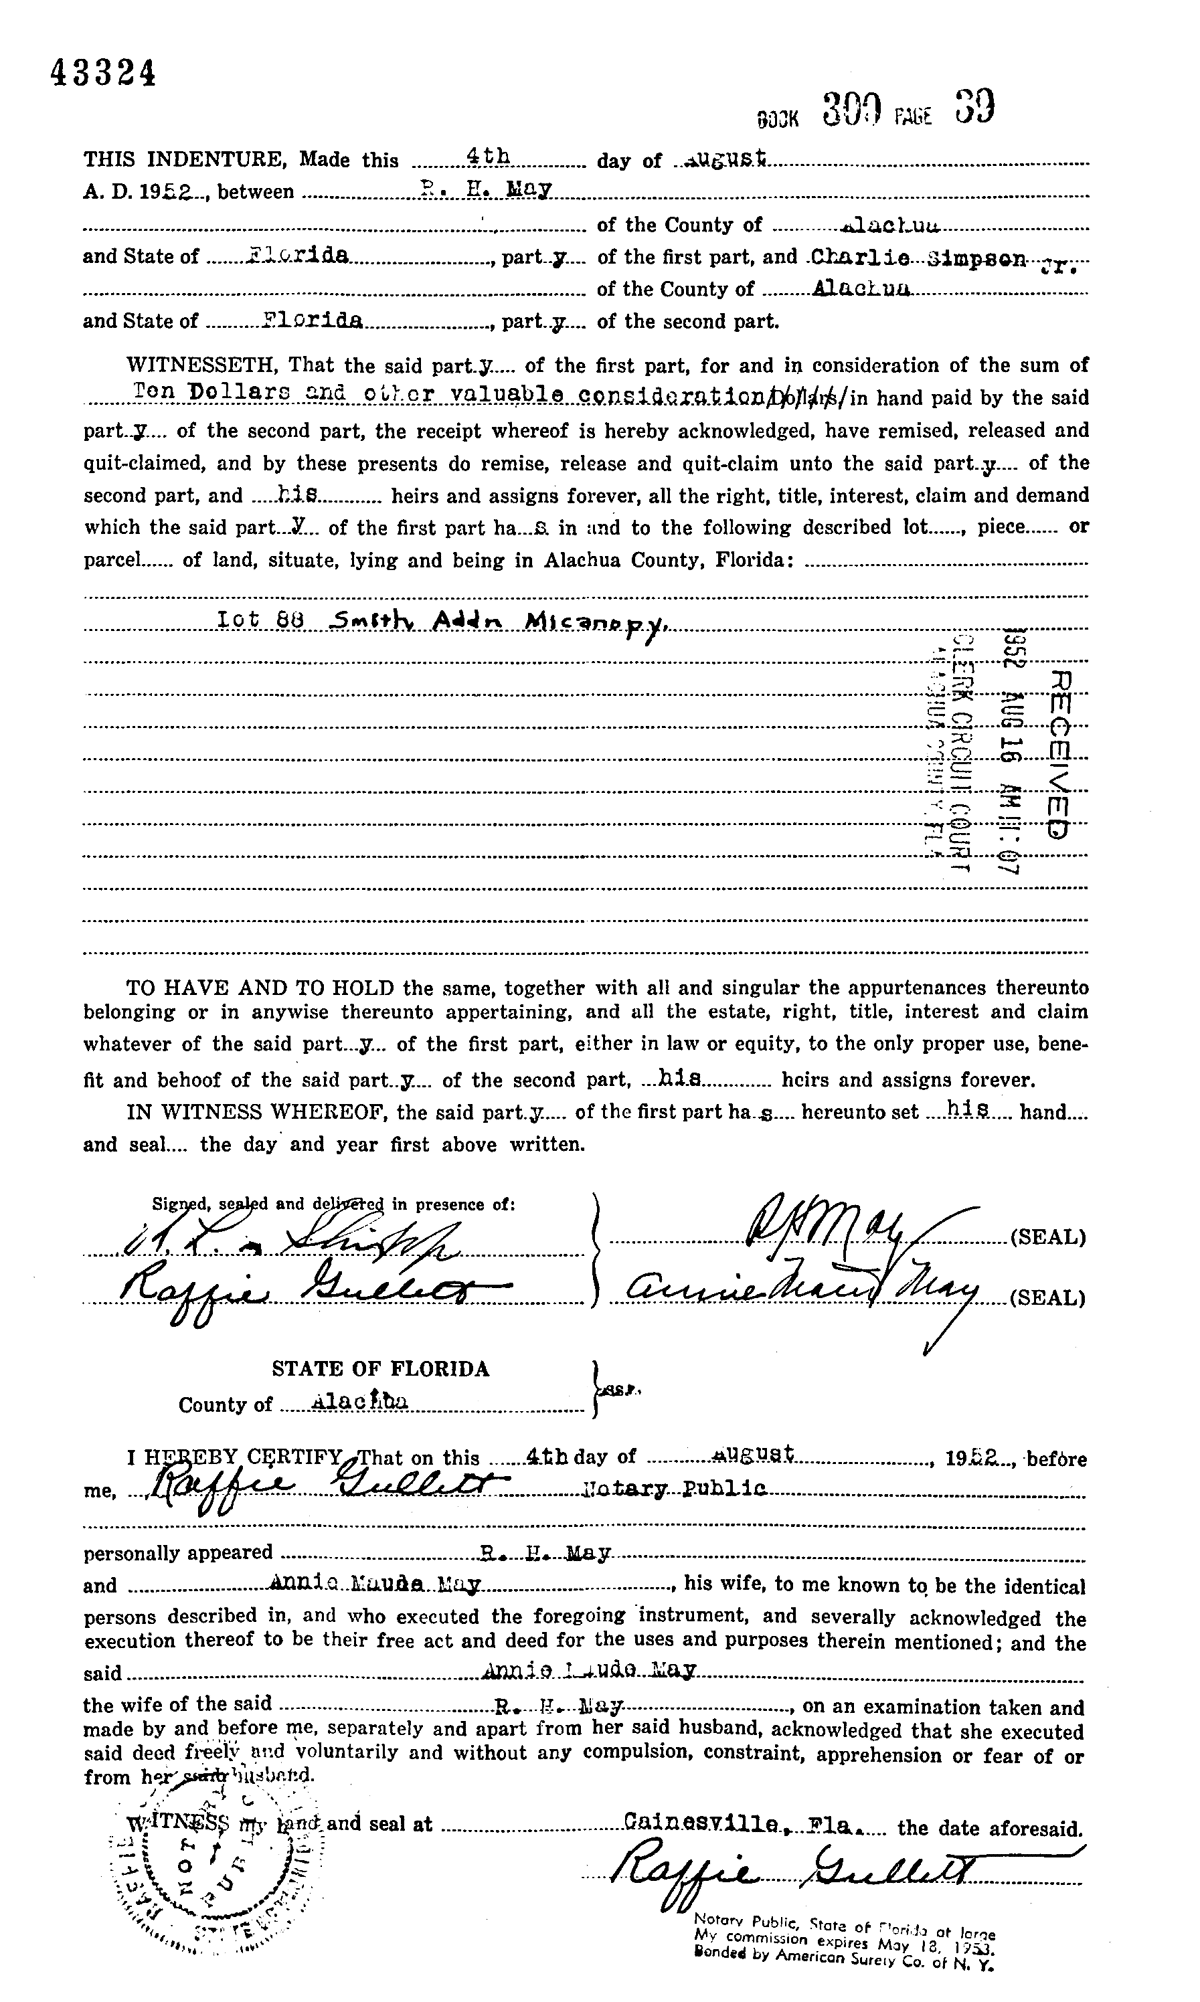 43324
BOOK 300 PAGE 39
THIS INDENTURE, Made this 4th day of August
A. D. 1952, between R. H. May
of the County of Alachua
and State of Florida, party of the first part, and Charlie Simpson Jr.
of the County of Alachua
and State of Florida, party of the second part.
WITNESSETH, That the said party of the first part, for and in consideration of the sum of
Ten Dollars and other valuable consideration Dollars in hand paid by the said
party of the second part, the receipt whereof is hereby acknowledged, have remised, released and
quit-claimed, and by these presents do remise, release and quit-claim unto the said party of the
second part, and his heirs and assigns forever, all the right, title, interest, claim and demand
which the said party of the first part has in and to the following described lot, piece or
parcel of land, situate, lying and being in Alachua County, Florida:
Lot 88 Smith Addn Micanopy.
RECEIVED
1952 AUG 16 AM 11:07
CLERK CIRCUIT COURT
ALACHUA COUNTY, FLA
TO HAVE AND TO HOLD the same, together with all and singular the appurtenances thereunto
belonging or in anywise thereunto appertaining, and all the estate, right, title, interest and claim
whatever of the said party of the first part, either in law or equity, to the only proper use, bene-
fit and behoof of the said party of the second part, his heirs and assigns forever.
IN WITNESS WHEREOF, the said party of the first part has hereunto set his hand
and seal the day and year first above written.
Signed, sealed and delivered in presence of:
Shipp R H May (SEAL)
Raffie Gullett Annie Maud May (SEAL)
STATE OF FLORIDA
County of Alachua ss.
I HEREBY CERTIFY, That on this 4th day of August, 1952, before
me, Raffie Gullett Notary Public
personally appeared R. H. May
and Annie Maude May, his wife, to me known to be the identical
persons described in, and who executed the foregoing instrument, and severally acknowledged the
execution thereof to be their free act and deed for the uses and purposes therein mentioned; and the
said Annie Maude May
the wife of the said R. H. May, on an examination taken and
made by and before me, separately and apart from her said husband, acknowledged that she executed
said deed freely and voluntarily and without any compulsion, constraint, apprehension or fear of or
from her said husband.
WITNESS my hand and seal at Gainesville, Fla. the date aforesaid.
Raffie Gullett
NOTARY PUBLIC
Notary Public, State of Florida at large
My commission expires May 18, 1953.
Bonded by American Surety Co. of N. Y.